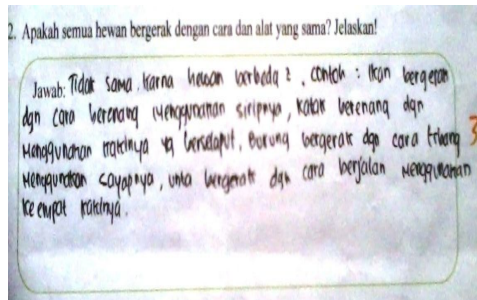 2. Apakah semua hewan bergerak dengan cara dan alat yang sama? Jelaskan!
Jawab: Tidak sama, karna hewan berbeda 2, contoh : Ikan bergerak
dgn cara berenang menggunakan siripnya, katak berenang dgn
menggunakan kakinya yg berselaput, burung bergerak dgn cara terbang 3
menggunakan sayapnya, unta bergerak dgn cara berjalan menggunakan
ke empat kakinya.